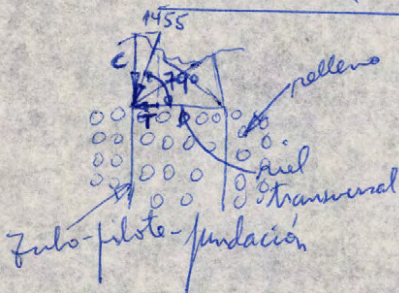 1455
C
79°
T
relleno
riel
transversal
Tubo-pilote-fundación